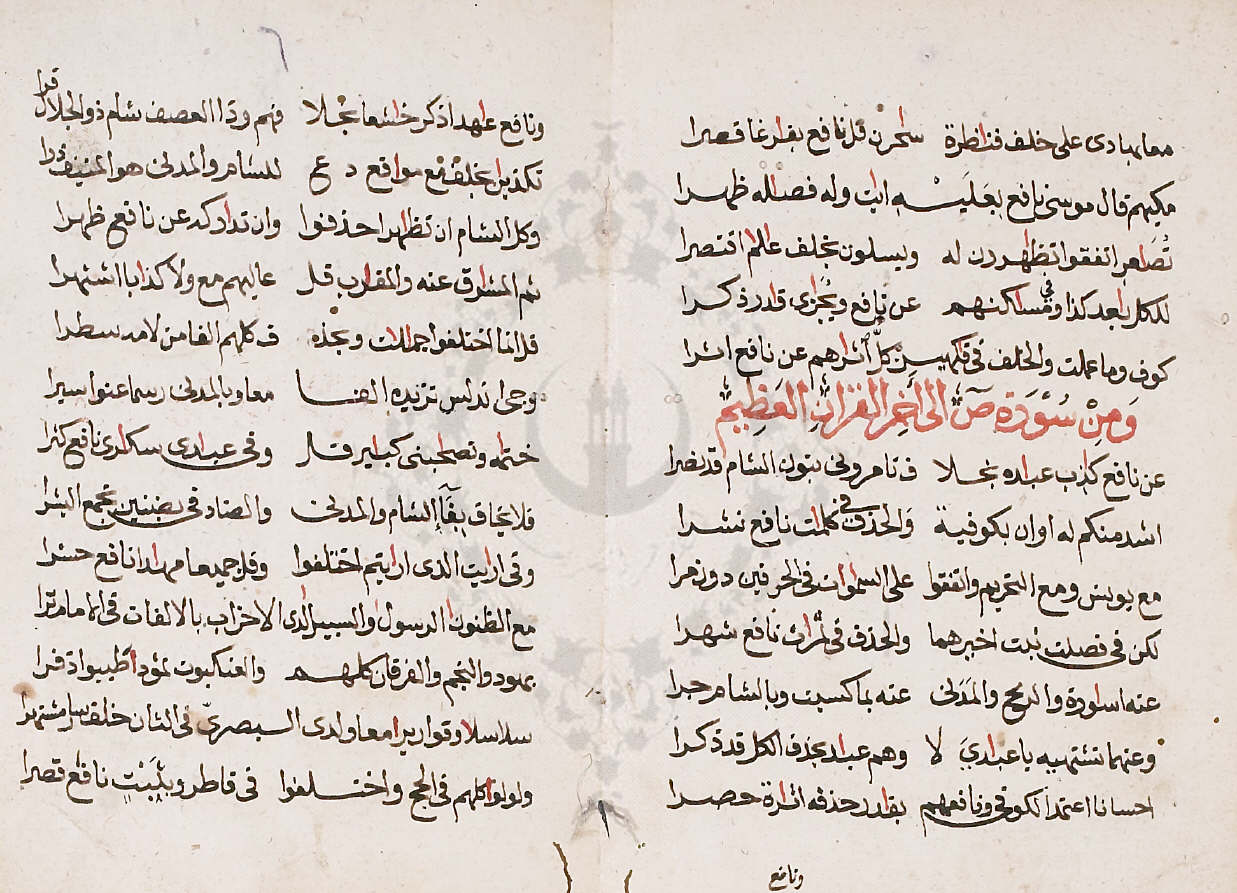 معا بهادى على خلف فناظرة سحران قل نافع بقادر غا قصرا
مكيهم قال موسى نافع بعليه ايات وله فصاله ظهرا
تصاعر اتفقوا تظاهرون له ويسلون بخلف عالم اقتصرا
للكل باعد كذا وفى مساكنهم عن نافع ونجزى قادر ذكرا
كوف وما عملت والخلف فى فكهين كل آثارهم عن نافع اثرا
ومن سورة ص الى اخر القران العظيم
عن نافع كاذب عباده بخلا ف تامرونى بنون الشام قد نصرا
اشد منكم له او ان بكوفية والحذف فى كلمات نافع نشرا
مع يونس ومع التحريم واتفقوا على السموات فى الحرفين دون مرا
لكن فى فصلت ثبت اخيرهما والحذف فى ثمرات نافع شهرا
عنه اساورة والريح والمدنى عنه بما كسبت وبالشام جرا
وعنهما تشتهيه يا عبادي لا وهم عباد بحذف الكل قد ذكرا
احسانا اعتمد الكوفى ونافعهم بقادر حذفه اثارة حصرا
ونافع
ونافع عاهد اذكر خاشعا بخلا فهم وذا العصف شام ذو الجلال قرا
تكذبان بخلف مع مواقع دع للشام والمدنى هو المنيف ذرا
وكل الشام ان تظاهرا حذفوا وان تداركه عن نافع ظهرا
ثم المشارق عنه والمغارب قل عاليهم مع ولا كذابا اشتهرا
قل انما اختلفوا جمالات وبحذ ف كلهم الفا من لامه سطرا
وجى اندلس تزيده الفا معا وبالمدنى رسما عنوا سيرا
ختامه وتصاحبنى كباير قل وفى عبادى سكارى نافع كثرا
فلا يخاف بفآء الشام والمدنى والضاد فى بضنين تجمع البشرا
وفى ارايت الذى ارايتم اختلفوا وقل جميعا مهادا نافع حشرا
مع الظنون الرسول والسبيل لدى الاحزاب بالالفات فى الامام ترا
بهود والنجم والفرقان كلهم والعنكبوت ثمودا طيبوا ذفرا
سلاسلا وقواريرا معا ولدى البصري فى الثان خلف سار مشتهرا
ولولوا كلهم فى الحج واختلفوا فى فاطر وبثبت نافع قصرا